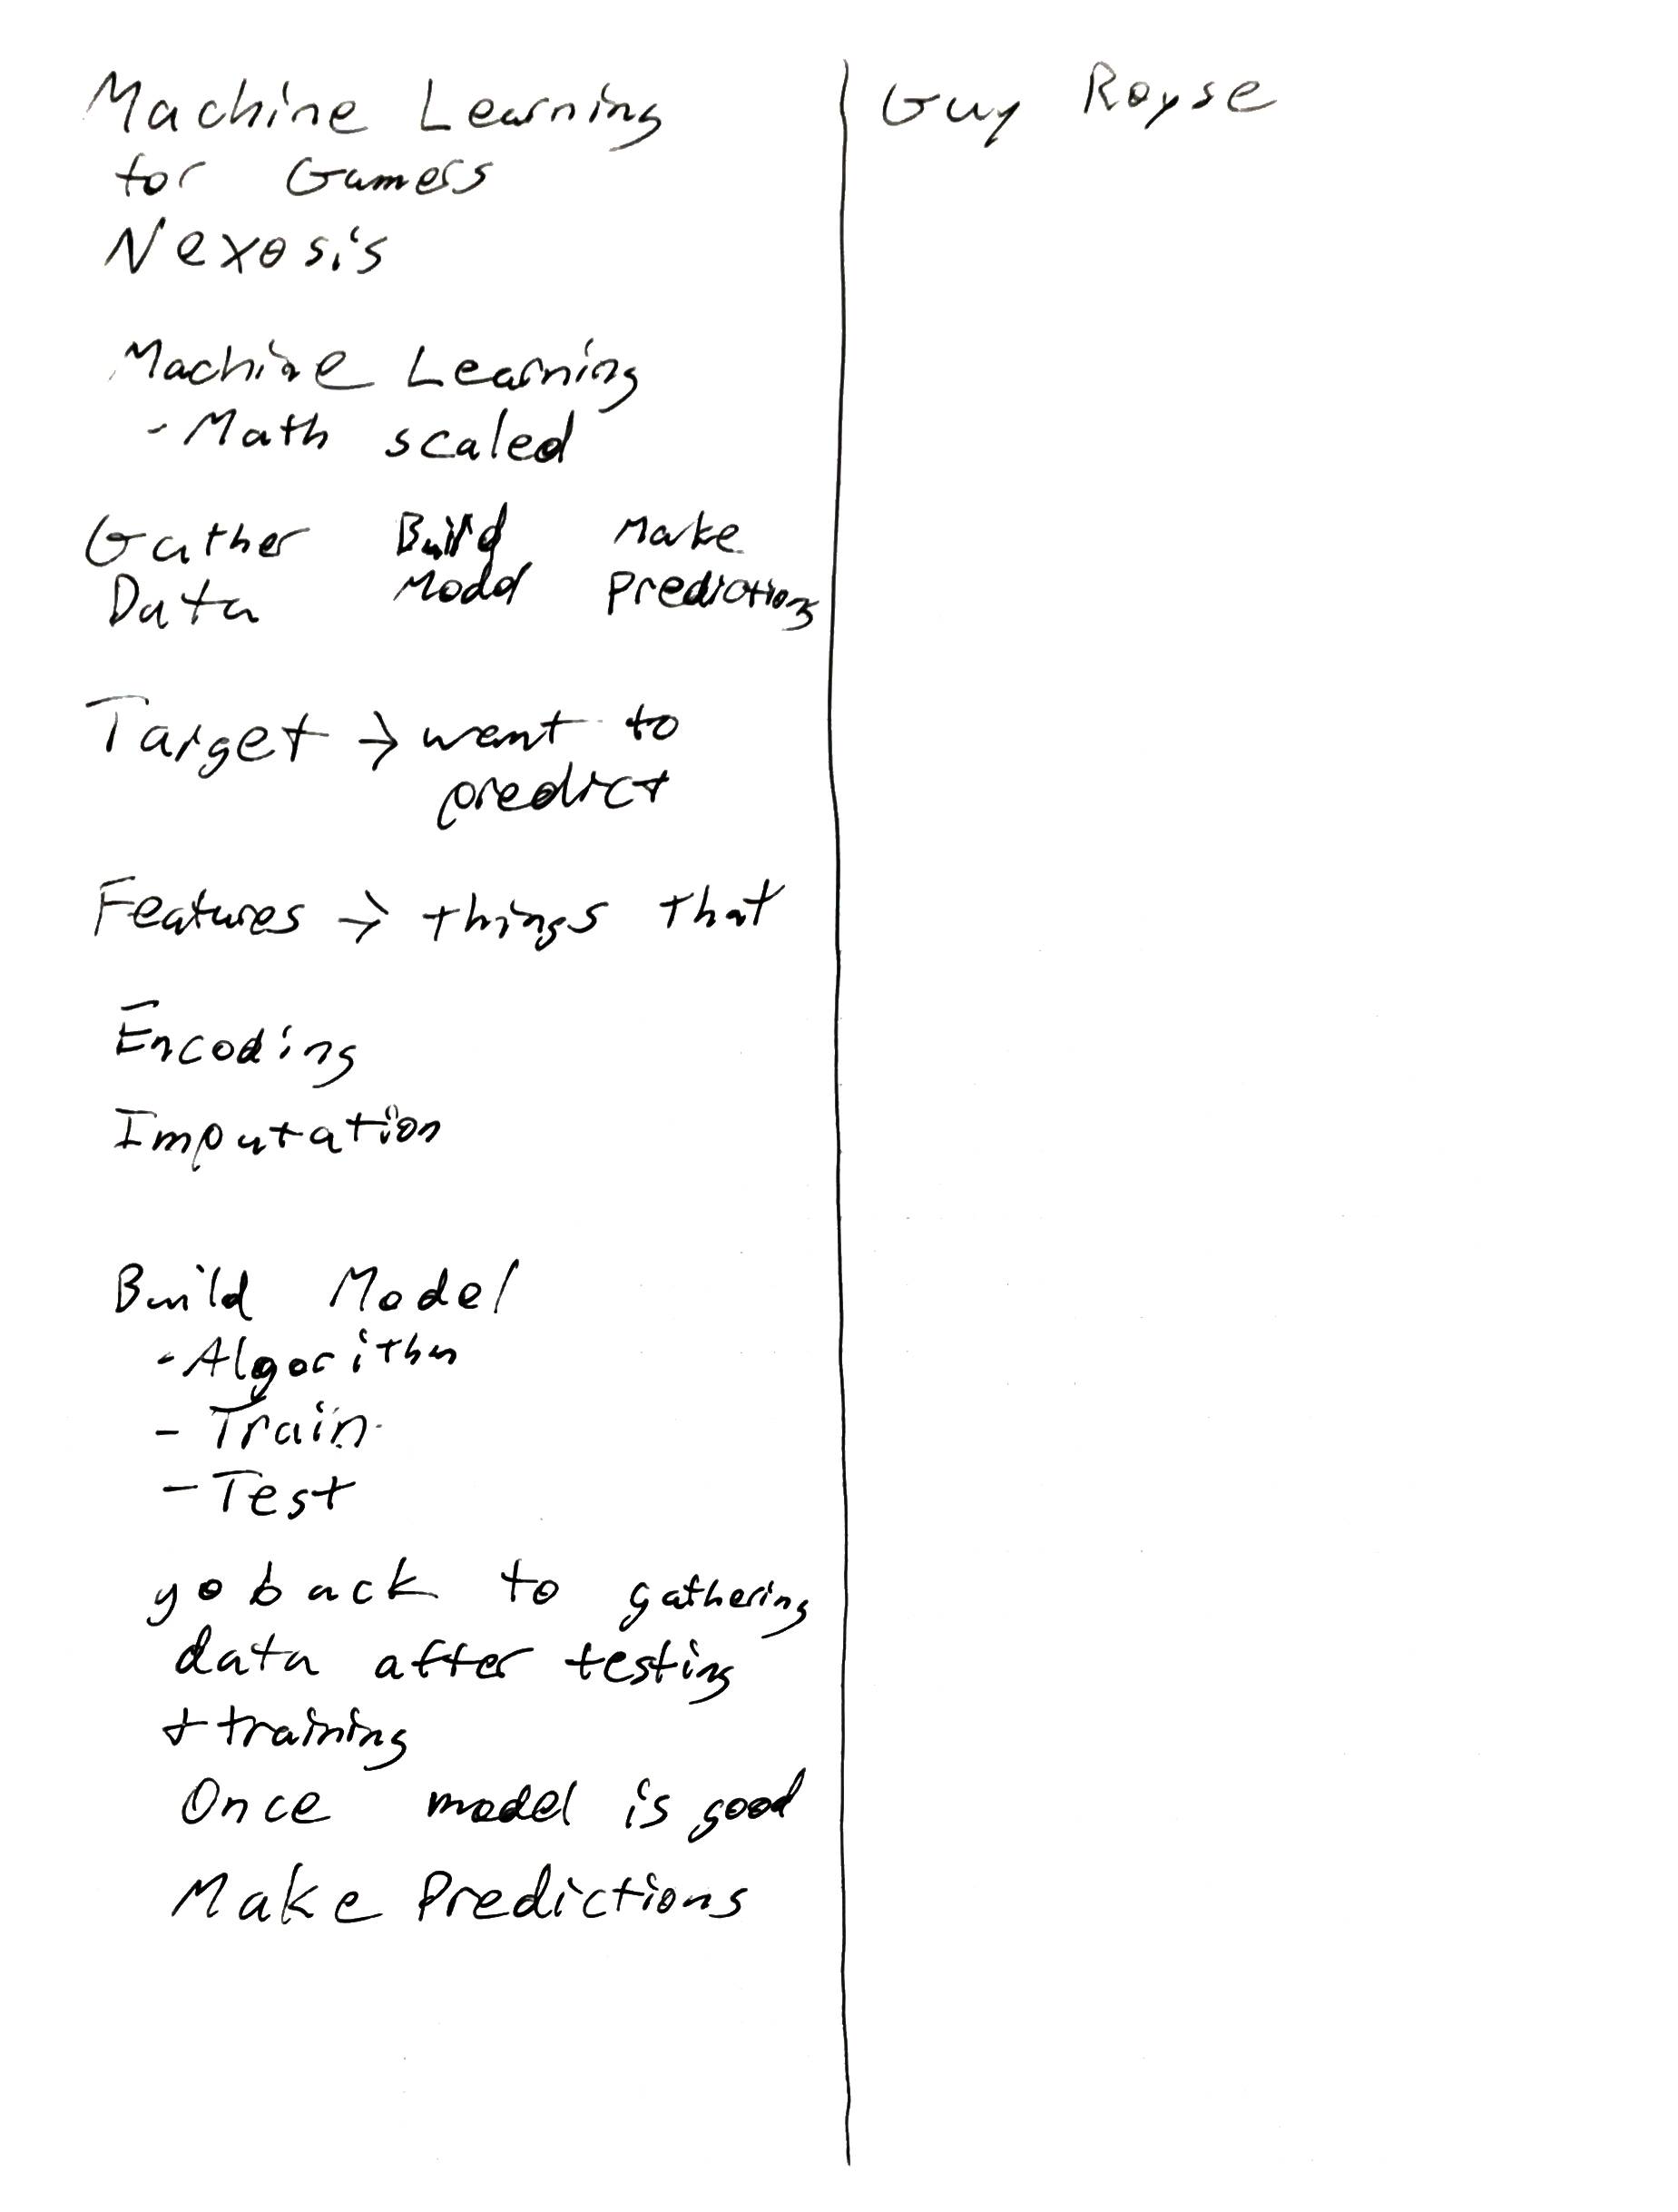 Machine Learning
for Gamers
Nexosis
Machine Learning
- Math scaled
Gather Build Make
Data Model Predictions
Target → want to
predict
Features → things that
Encoding
Imputation
Build Model
- Algorithm
- Train
- Test
go back to gathering
data after testing
+ training
Once model is good
Make Predictions
Guy Royse